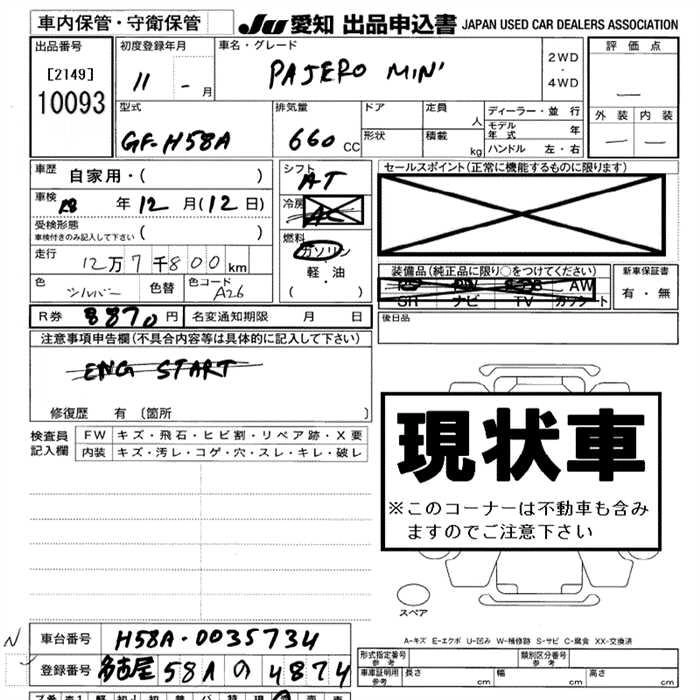 車内保管・守衛保管
JU 愛知 出品申込書 JAPAN USED CAR DEALERS ASSOCIATION
出品番号
[2149]
10093
初度登録年月
11 - 月
車名・グレード
PAJERO MINI
2WD
・
4WD
評価点
—
外装 内装
— —
型式
GF-H58A
排気量
660 CC
ドア
形状
定員 人
積載 kg
ディーラー・並行
モデル年式 年
ハンドル 左・右
車歴
自家用・( )
車検
28 年 12 月 (12 日)
受検形態
車検付きのみ記入して下さい ( )
走行
12万7千800km
色
シルバー
色替
色コード
A26
シフト
AT
冷房
AC
燃料
ガソリン
軽・油
( ・ )
セールスポイント(正常に機能するものに限ります)
装備品(純正品に限り○をつけてください)
AW
SR ナビ TV カワシート
新車保証書
有・無
R券 8870 円
名変通知期限 月 日
後日品
注意事項申告欄(不具合内容等は具体的に記入して下さい)
ENG START
修復歴 有 〔箇所 〕
検査員
記入欄
FW キズ・飛石・ヒビ割・リペア跡・X要
内装 キズ・汚レ・コゲ・穴・スレ・キレ・破レ
現状車
※このコーナーは不動車も含み
ますのでご注意下さい
スペア
A-キズ E-エクボ U-凹み W-補修跡 S-サビ C-腐食 XX-交換済
N
車台番号 H58A-0035734
登録番号 名古屋 58A の 4874
形式指定番号
参考
類別区分番号
参考
車庫証明用
参考
長さ cm 幅 cm 高さ cm